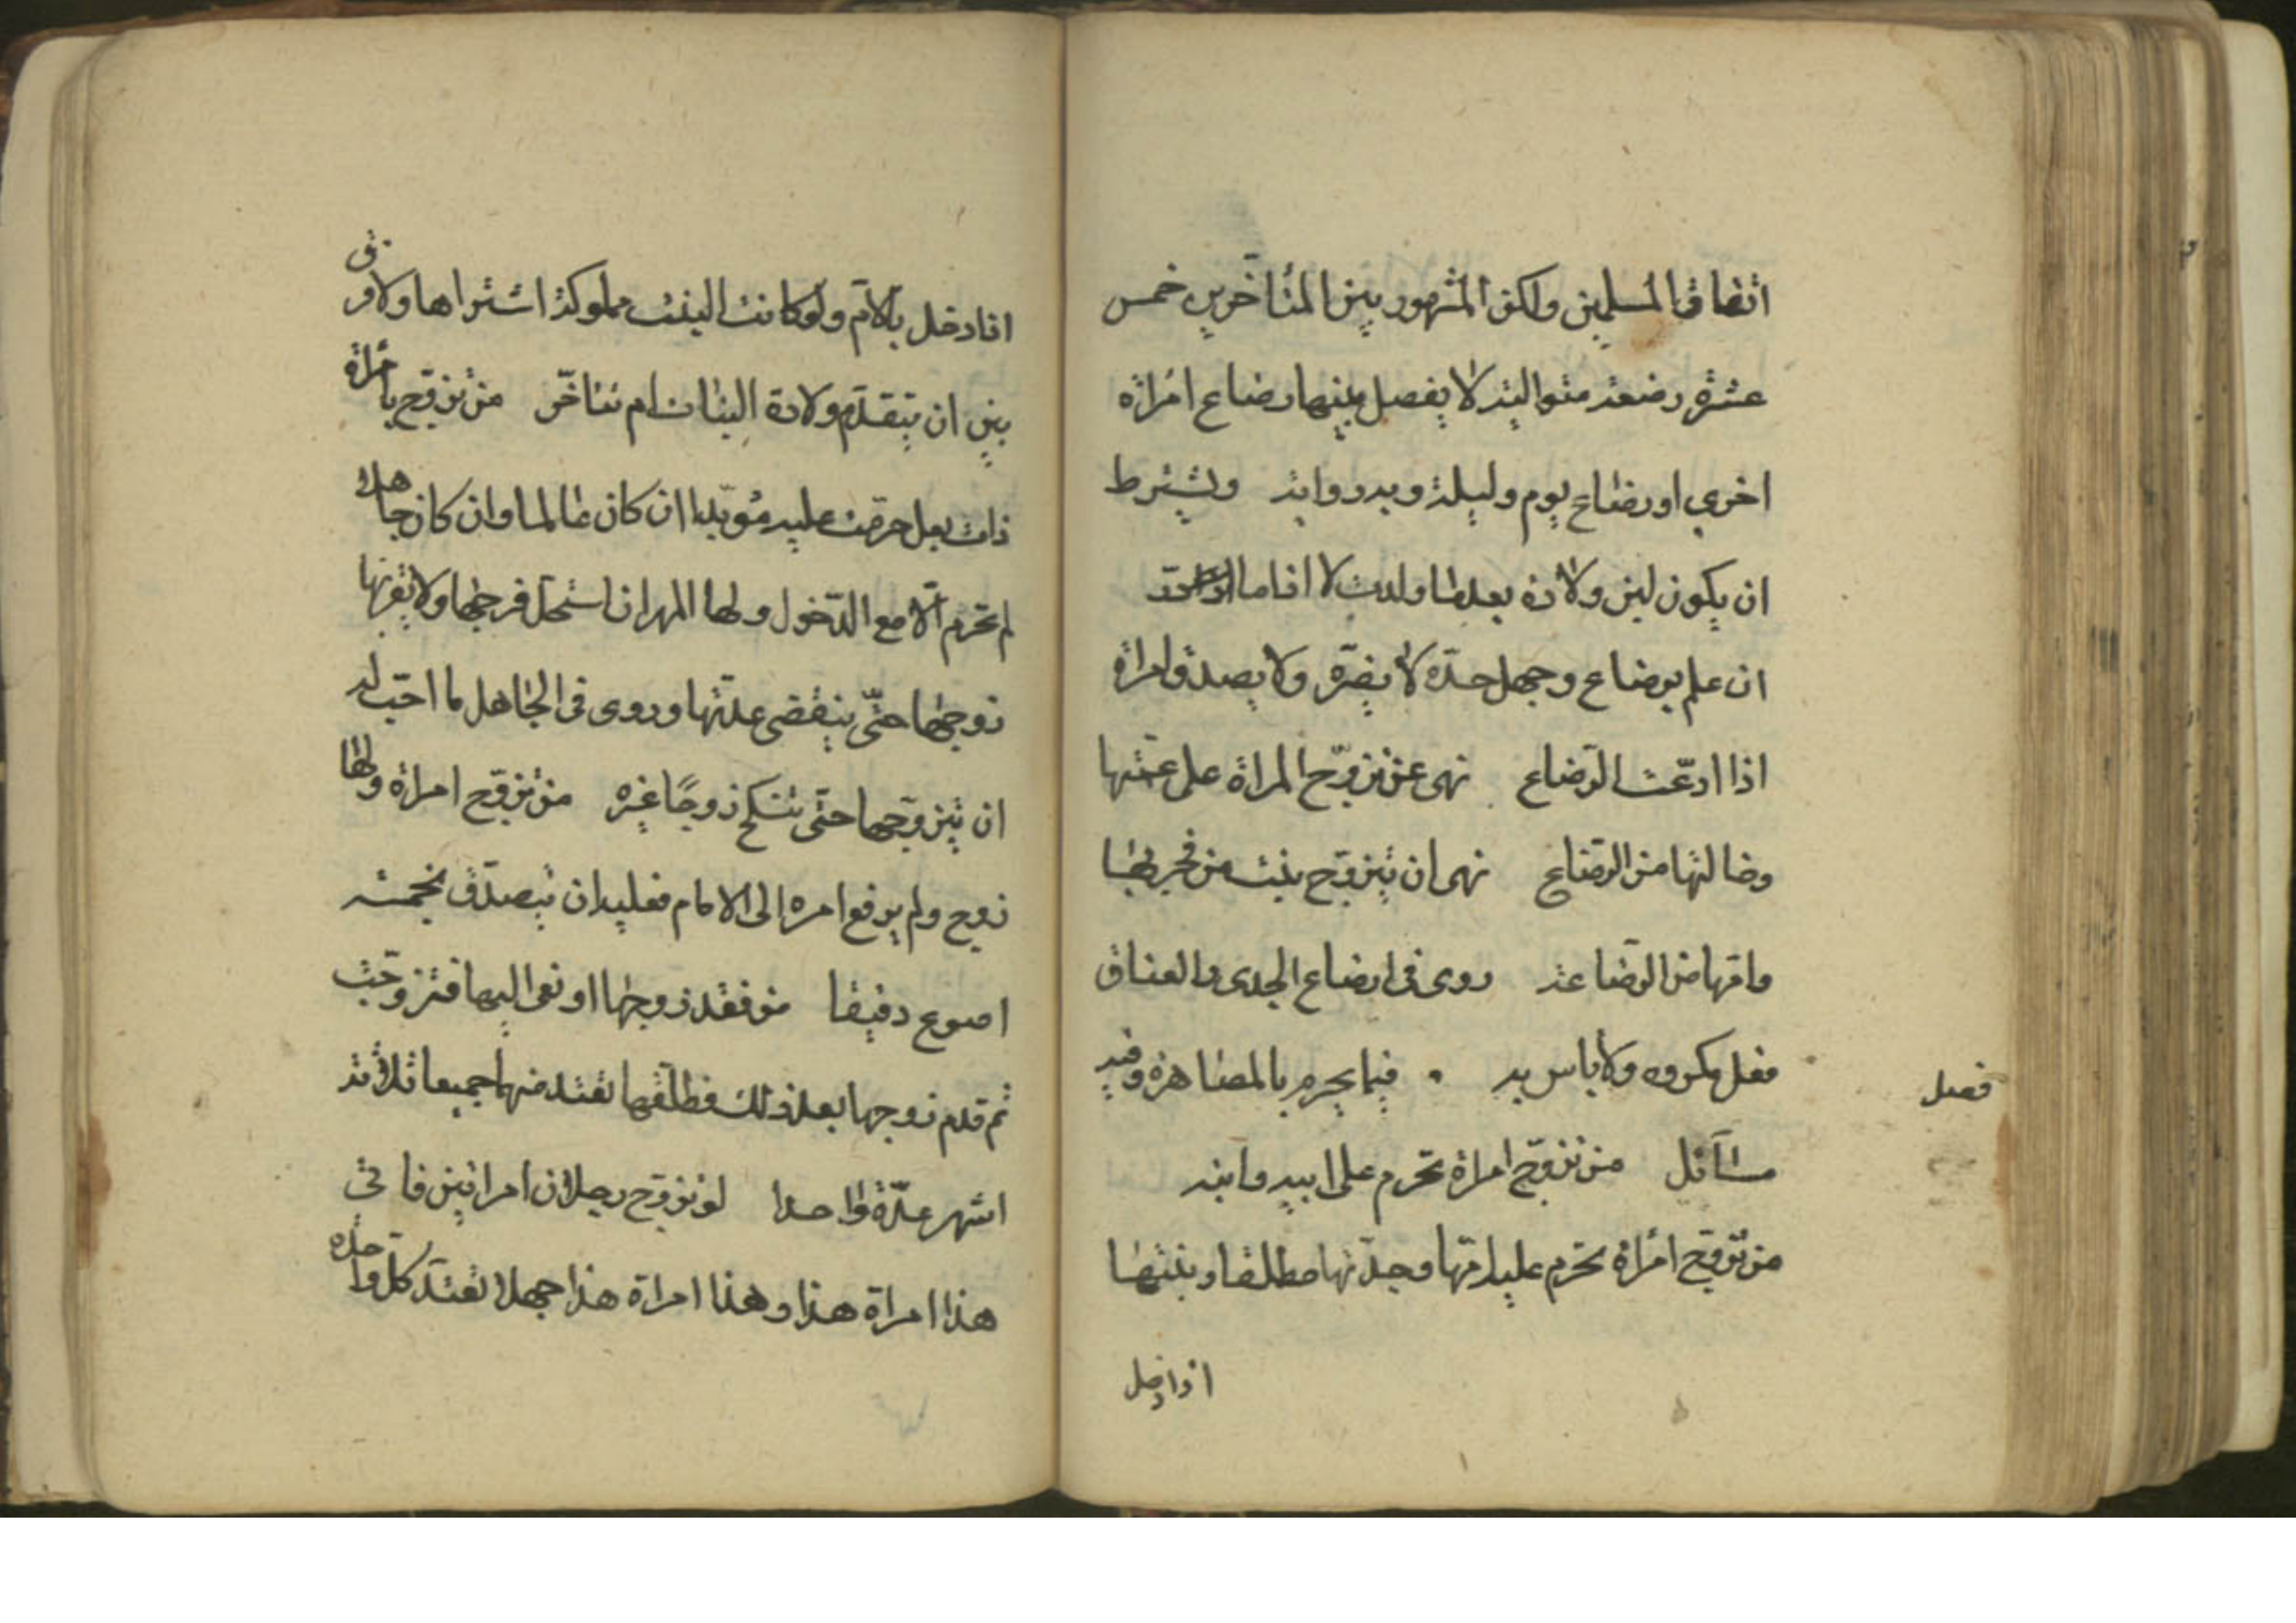 اتفاق المسلمين ولكن المشهور بين المتأخرين خمس
عشرة رضعة متوالية لا يفصل بينها رضاع امرأة
اخرى او رضاع يوم وليلة وبه رواية ويشترط
ان يكون لبن ولادة بعد ما ولدت لا اذا ما
ان علم برضاع وجهل حدّه لا يضرّه ولا يصدق امرأة
اذا ادّعت الرّضاع نهى عن تزوّج المراة على عمّتها
وخالتها من الرّضاع نهى ان يتزوّج بنت من فجر بها
وامّها من الرّضاعة روى في ارضاع الجدى والعناق
فعل مكروه ولا باس به . فيما يحرم بالمصاهرة وفيه
فصل
مسآئل من تزوّج امراة تحرم على ابيه وابنه
من تزوّج امرأة تحرم عليه امّها وجدّتها مطلقا وبنتها
اذا دخل
اذا دخل بالامّ ولو كانت البنت مملوكة اشتراها ولا فرق
بين ان يتقدّم ولادة البنات ام تتاخّر من تزوّج بامرأة
ذات بعل حرّمت عليه مؤبّدا ان كان عالما وان كان جاهلا
لم تحرم الّا مع الدّخول ولها المهر ان استحل فرجها ولا يقربها
زوجها حتّى ينقضى عدّتها وروى في الجاهل ما احبّ له
ان يتزوّجها حتّى تنكح زوجًا غيره من تزوّج امراة ولها
زوج ولم يرفع امره الى الامام فعليه ان يتصدّق بخمسة
اصوع دقيقا من فقد زوجها او نعى اليها فتزوّجت
ثم قدم زوجها بعد ذلك فطلّقها تعتد منهما جميعا ثلاثة
اشهر عدّة واحدا لو تزوّج رجلان امراتين فاتى
هذا امراة هذا وهذا امراة هذا جهلا تعتدّ كلّ واحدة